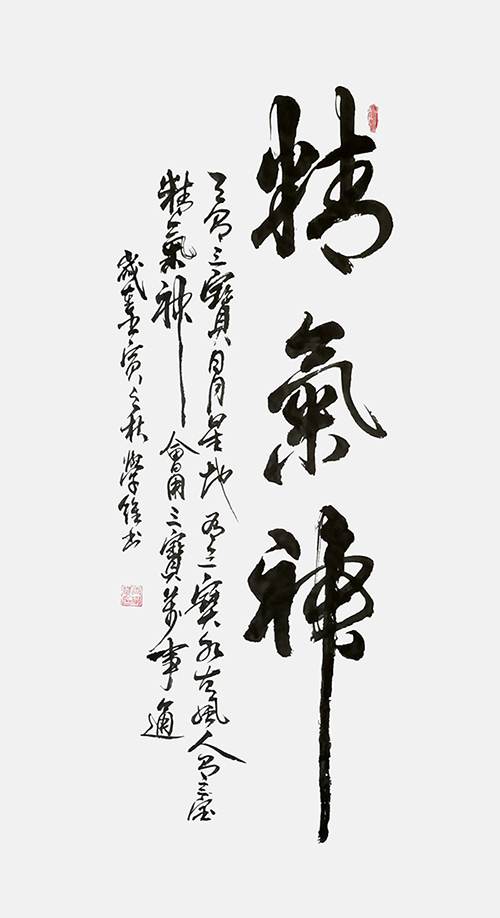 精氣神
天有三寶日月星地有三寶水火風人有三寶
精氣神會用三寶萬事通
歲壬寅之秋學維書